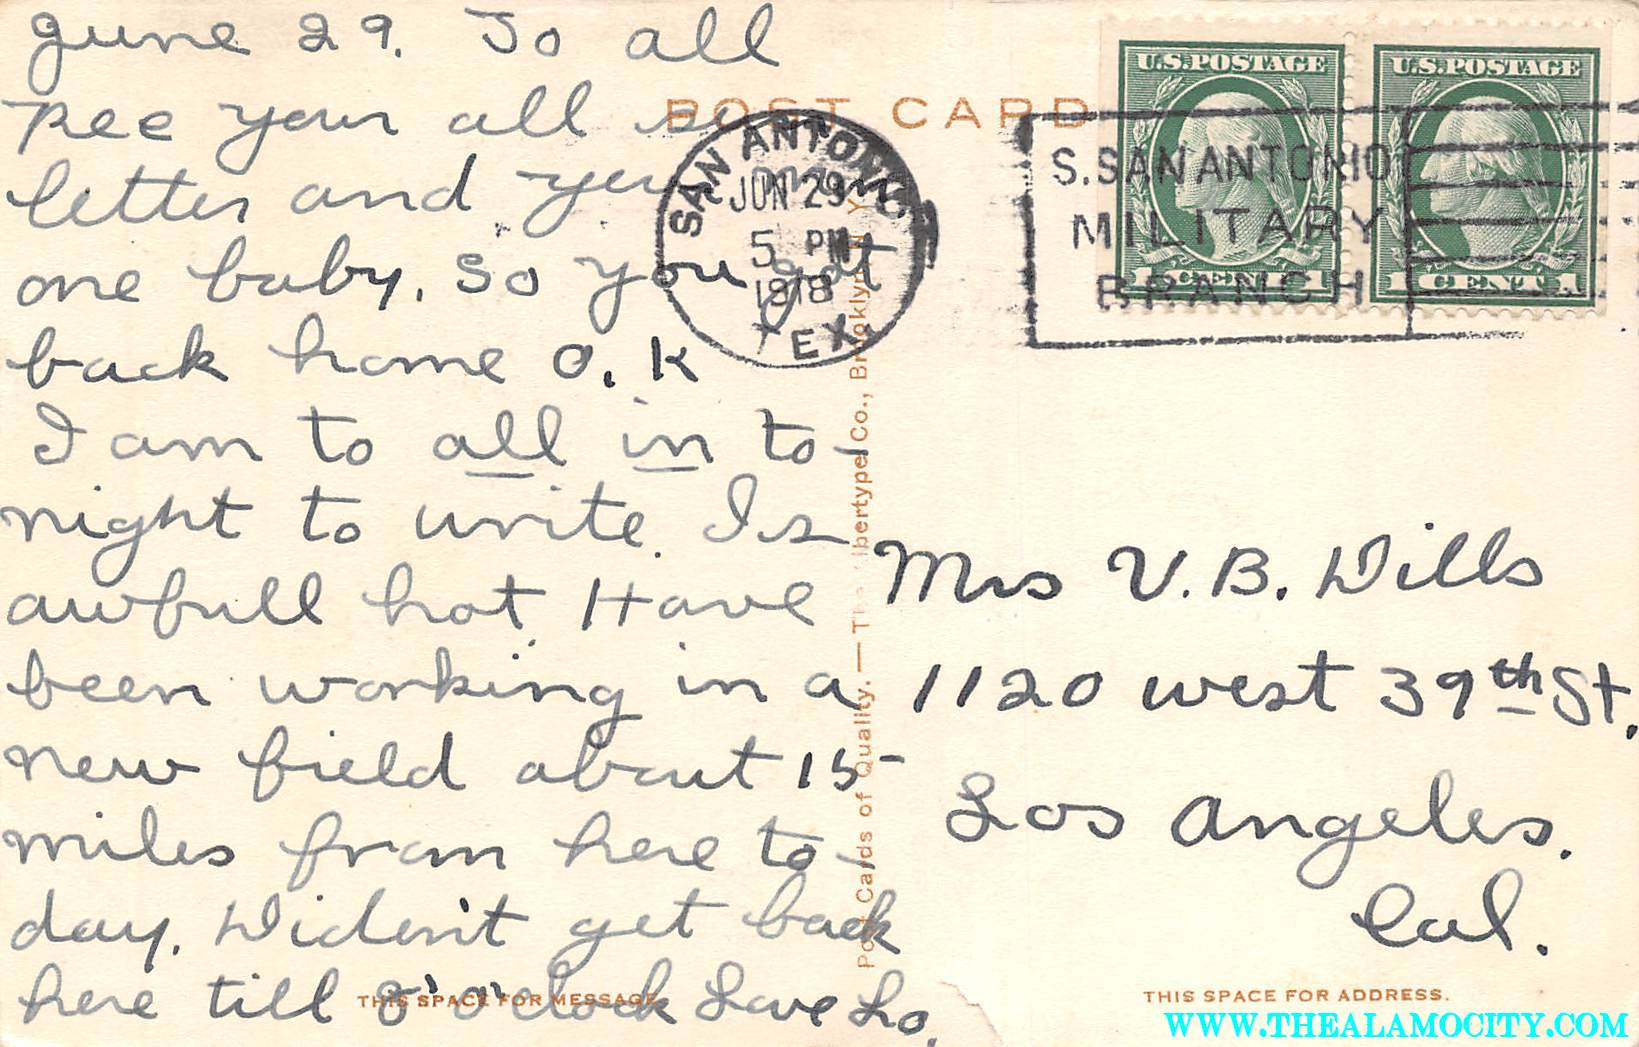 June 29. To all
Rec your all
letter and your
one baby. So you got
back home O.K
I am to all in to-
night to write. Is
awfull hot. Have
been working in a
new field about 15
miles from here to-
day. Diden't get back
here till 8 o'clock Love Lo.
POST CARD
U.S.POSTAGE
1 CENT 1
U.S.POSTAGE
1 CENT 1
SAN ANTONIO
JUN 29
5 PM
1918
TEX.
S. SAN ANTONIO
MILITARY
BRANCH
Post Cards of Quality. — The Albertype Co., Brooklyn, N. Y.
Mrs V. B. Dills
1120 west 39th St.
Los Angeles.
Cal.
THIS SPACE FOR MESSAGE
THIS SPACE FOR ADDRESS.
WWW.THEALAMOCITY.COM